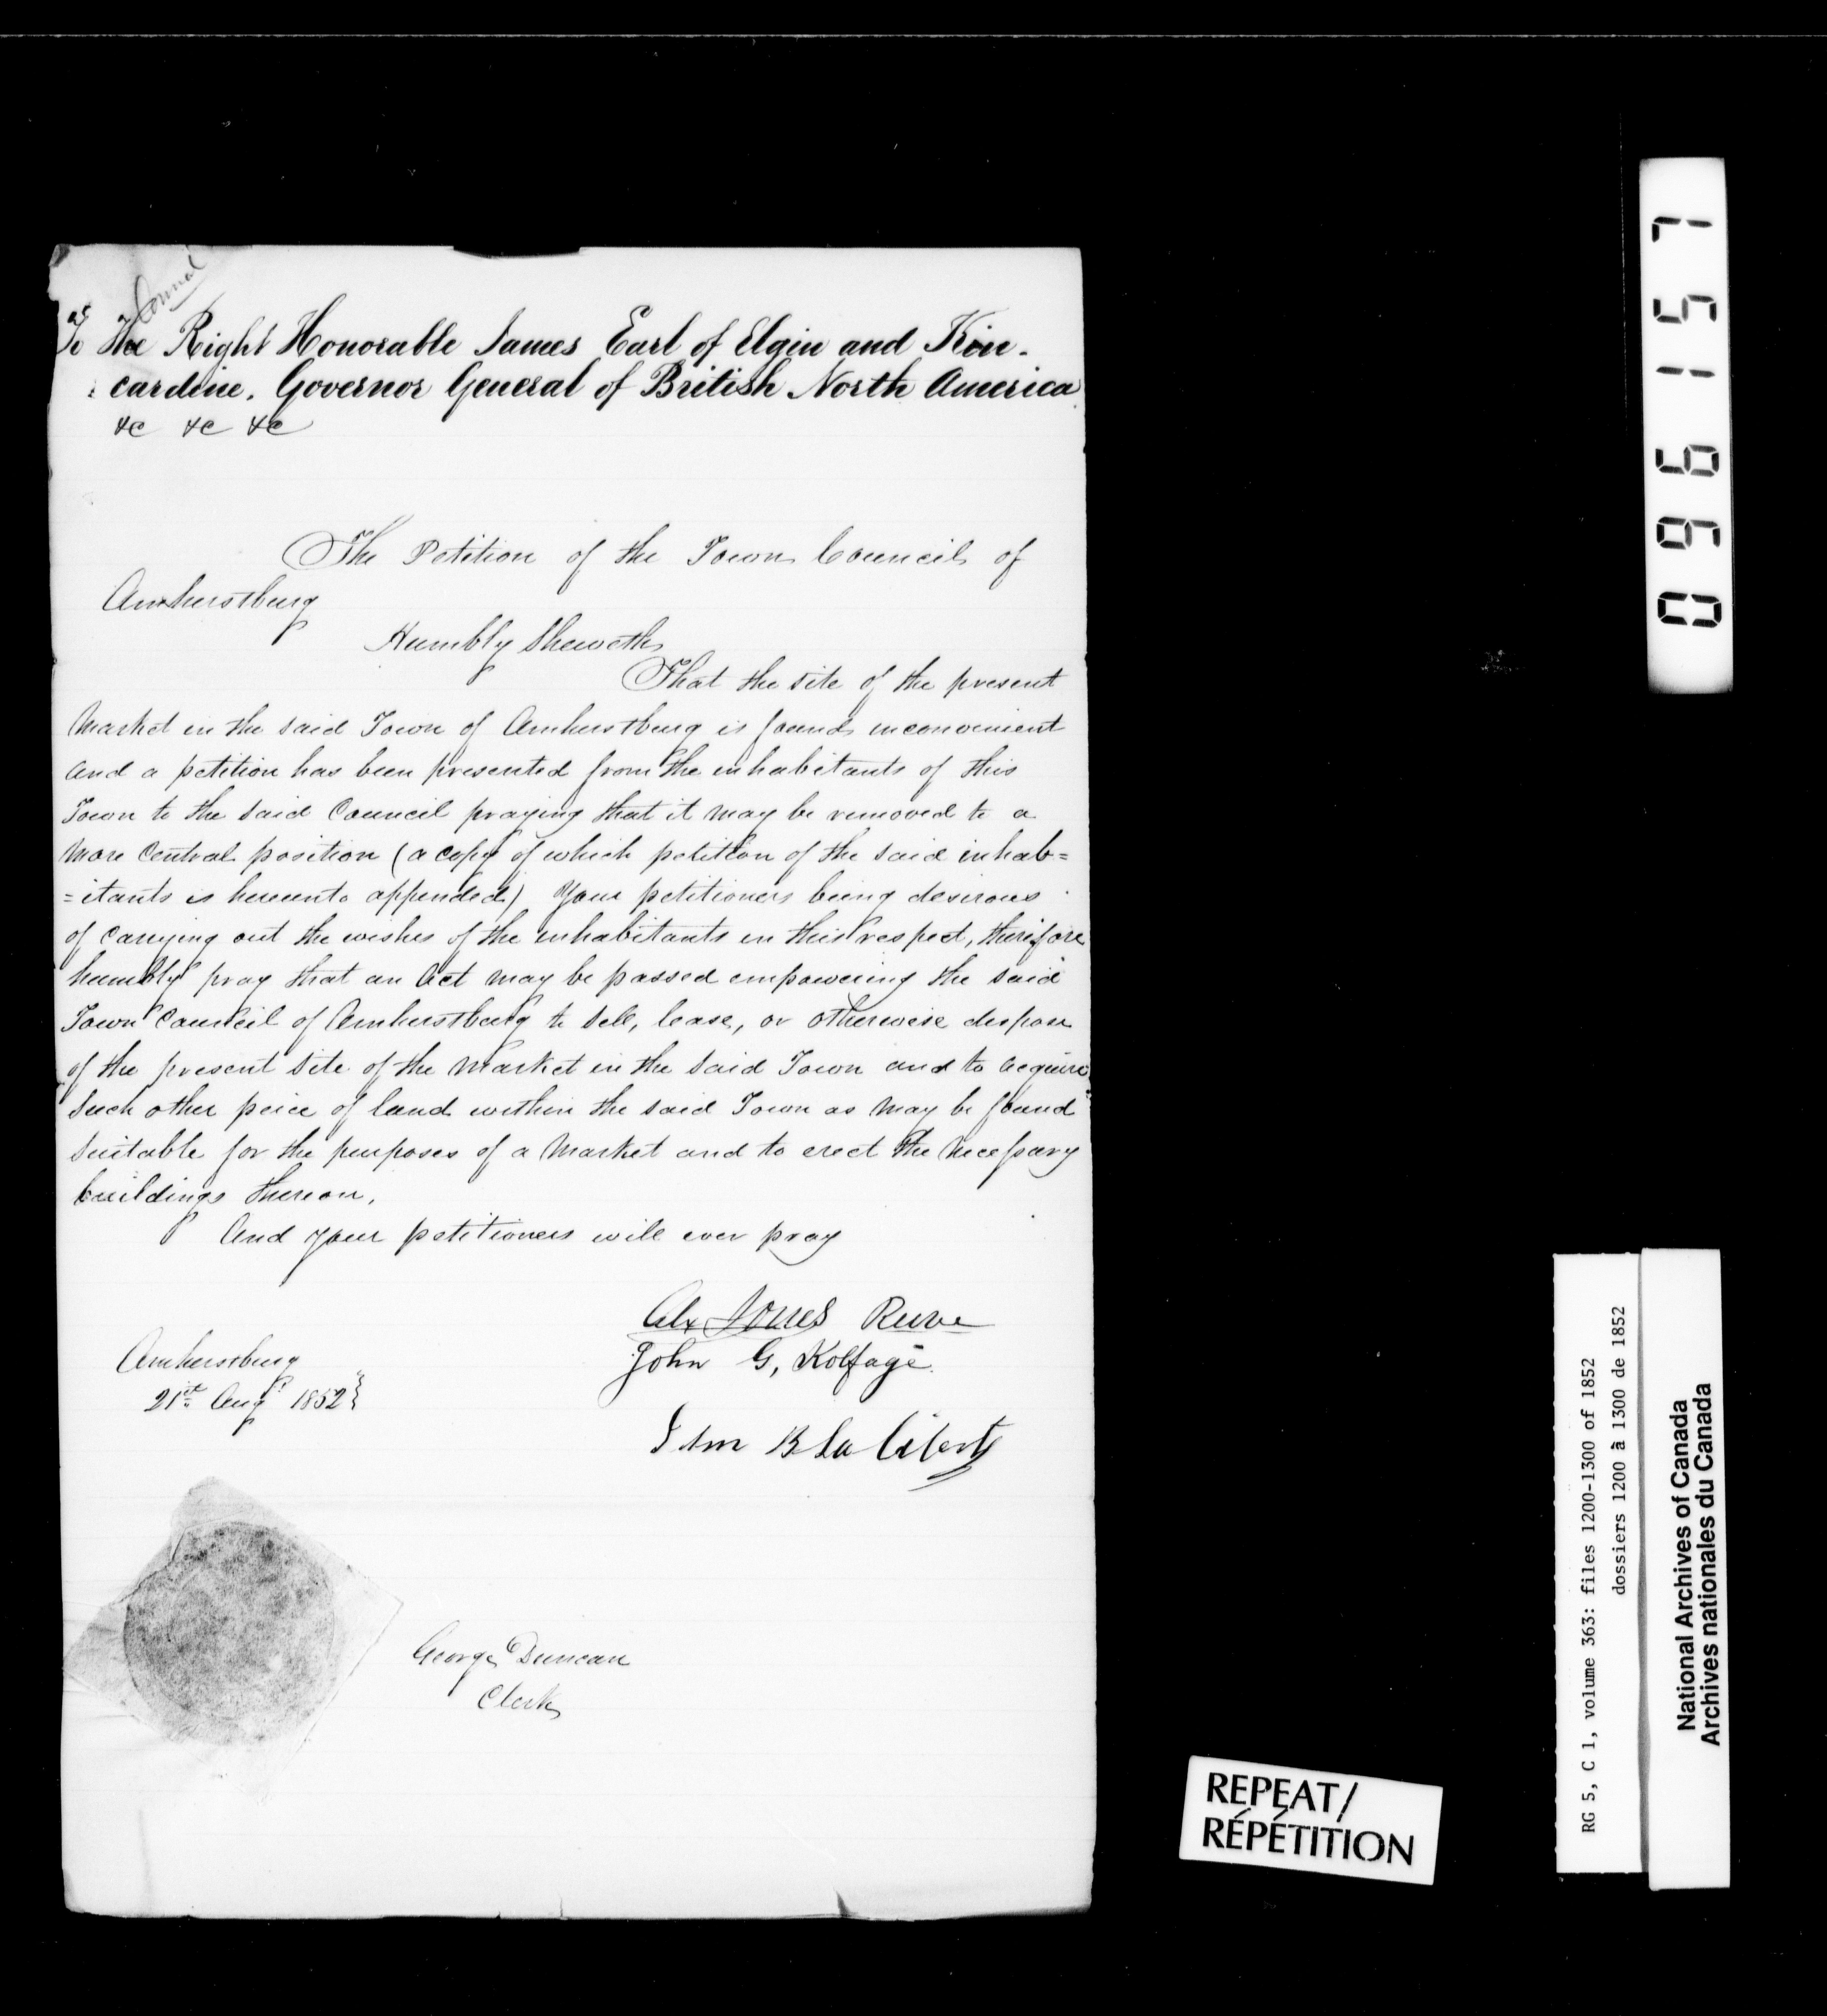 Council
To The Right Honorable James Earl of Elgin and Kin-
cardine. Governor General of British North America
&c &c &c
The Petition of the Town Council of
Amherstburg
Humbly Sheweth
That the site of the present
Market in the said Town of Amherstburg is found inconvenient
and a petition has been presented from the inhabitants of this
Town to the said Council praying that it may be removed to a
More Central position (a copy of which petition of the said inhab=
=itants is hereunto appended) Your petitioners being desirous
of Carrying out the wishes of the inhabitants in this respect, therefore
humbly pray that an Act may be passed empowering the said
Town Council of Amherstburg to sell, lease, or otherwise dispose
of the present site of the Market in the said Town and to acquire
such other peice of land within the said Town as may be found
suitable for the purposes of a Market and to erect the necessary
buildings thereon.
And your petitioners will ever pray
Alx Jones Reeve
John G, Kolfage
Amherstburg
21st Augt 1852
B La Liberty
George Duncan
Clerk
096157
RG 5, C 1, volume 363: files 1200-1300 of 1852
dossiers 1200 à 1300 de 1852
National Archives of Canada
Archives nationales du Canada
REPEAT/
RÉPÉTITION